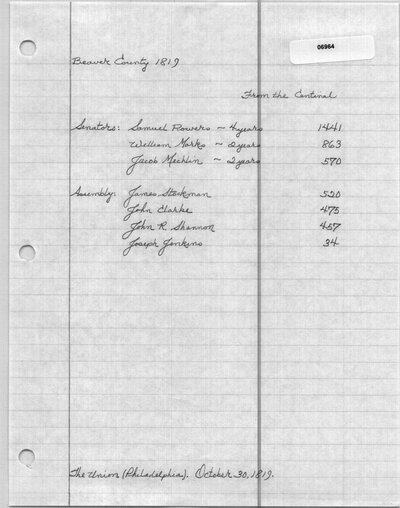 06964
Beaver County 1819
From the Centinal
Senators: Samuel Powers ~ 4 years 1441
William Marks ~ 2 years 863
Jacob Mechlin ~ 2 years 570
Assembly: James Stockman 520
John Clarke 475
John R. Shannon 457
Joseph Jenkins 34
The Union (Philadelphia). October 30, 1819.